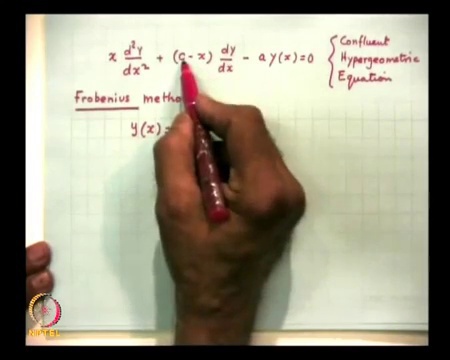 x d²y/dx² + (c - x) dy/dx - a y(x) = 0
{ Confluent
Hypergeometric
Equation
Frobenius metho
y(x) =
NPTEL